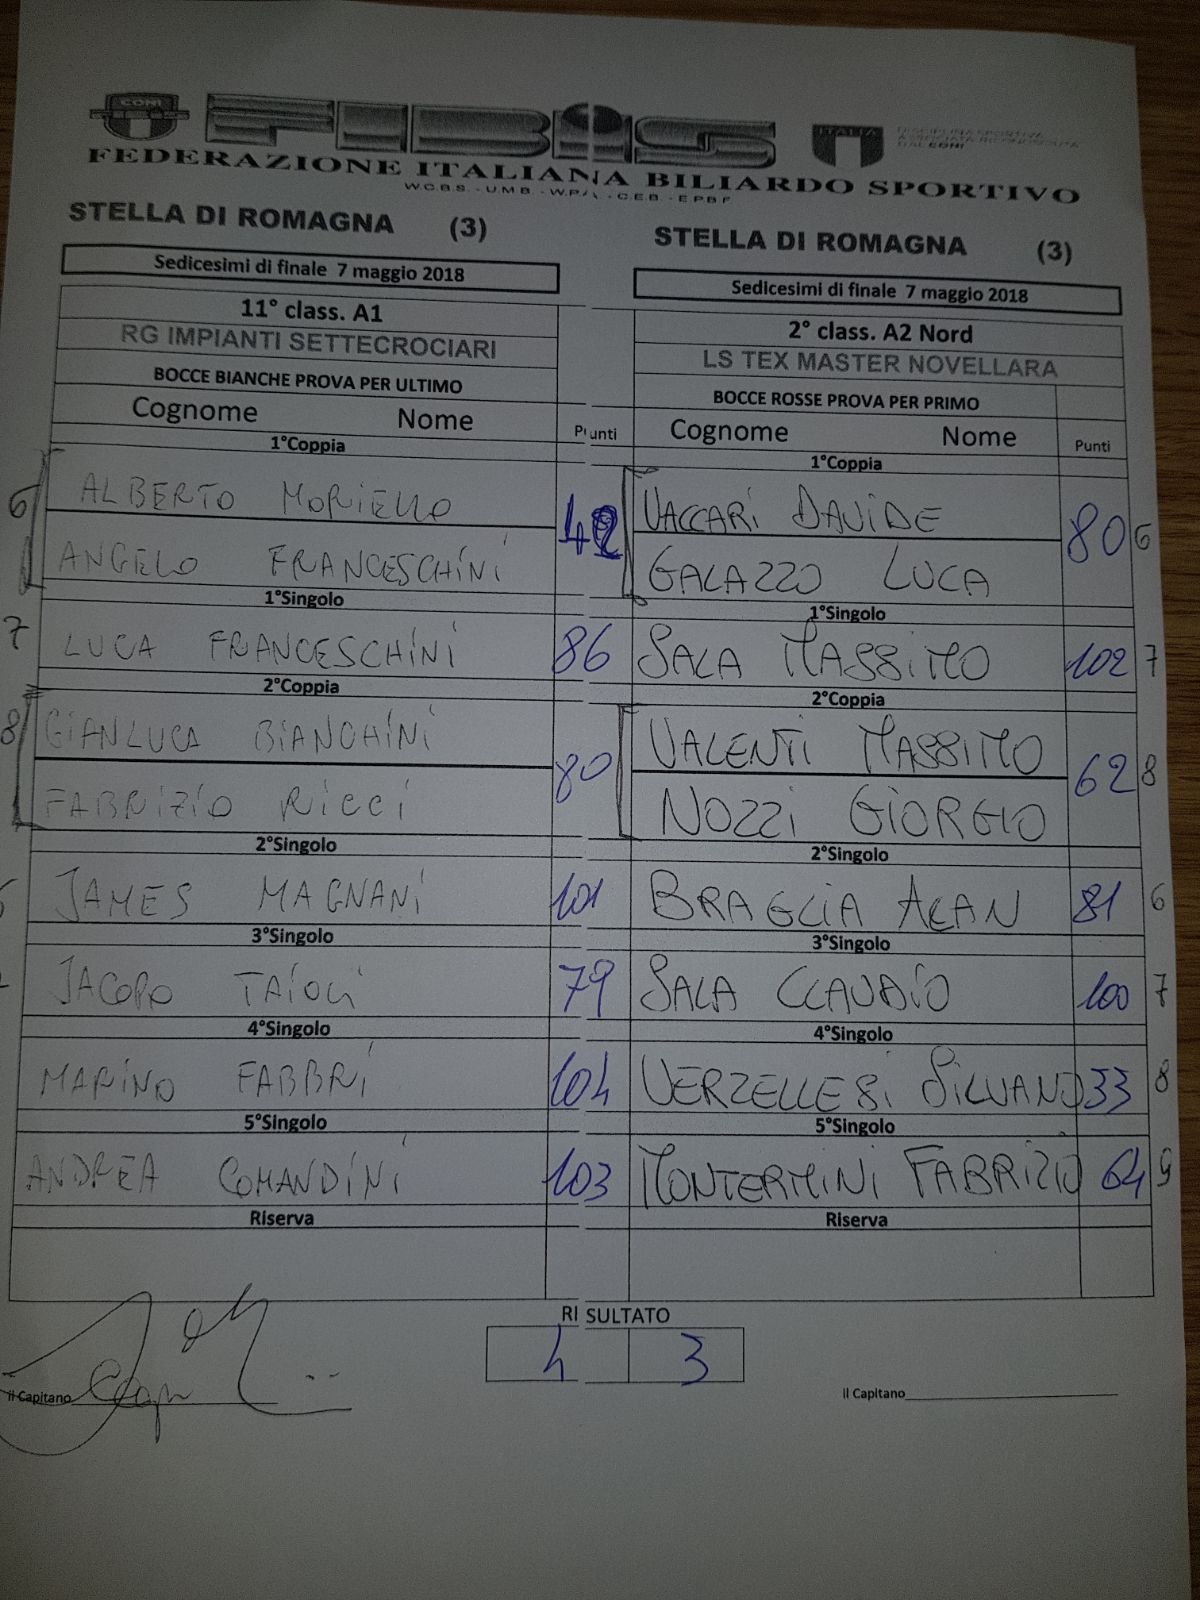 CONI
FIBIS
ITALIA
FEDERAZIONE ITALIANA BILIARDO SPORTIVO
STELLA DI ROMAGNA (3)
Sedicesimi di finale 7 maggio 2018
11° class. A1
RG IMPIANTI SETTECROCIARI
BOCCE BIANCHE PROVA PER ULTIMO
Cognome Nome Punti
1°Coppia
6 ALBERTO MORIELLO
ANGELO FRANCESCHINI
1°Singolo
7 LUCA FRANCESCHINI 86
2°Coppia
8 GIANLUCA BIANCHINI 80
FABRIZIO RICCI
2°Singolo
JAMES MAGNANI 101
3°Singolo
JACOPO TAIOLI 79
4°Singolo
MARINO FABBRI 104
5°Singolo
ANDREA COMANDINI 103
Riserva
STELLA DI ROMAGNA (3)
Sedicesimi di finale 7 maggio 2018
2° class. A2 Nord
LS TEX MASTER NOVELLARA
BOCCE ROSSE PROVA PER PRIMO
Cognome Nome Punti
1°Coppia
VACCARI DAVIDE 80 6
GALAZZO LUCA
1°Singolo
SALA MASSIMO 102 7
2°Coppia
VALENTI MASSIMO 62 8
NOZZI GIORGIO
2°Singolo
BRAGLIA ALAN 81 6
3°Singolo
SALA CLAUDIO 100 7
4°Singolo
VERZELLESI SILVANO 33 8
5°Singolo
MONTERMINI FABRIZIO 64 9
Riserva
RISULTATO
4 3
il Capitano
il Capitano